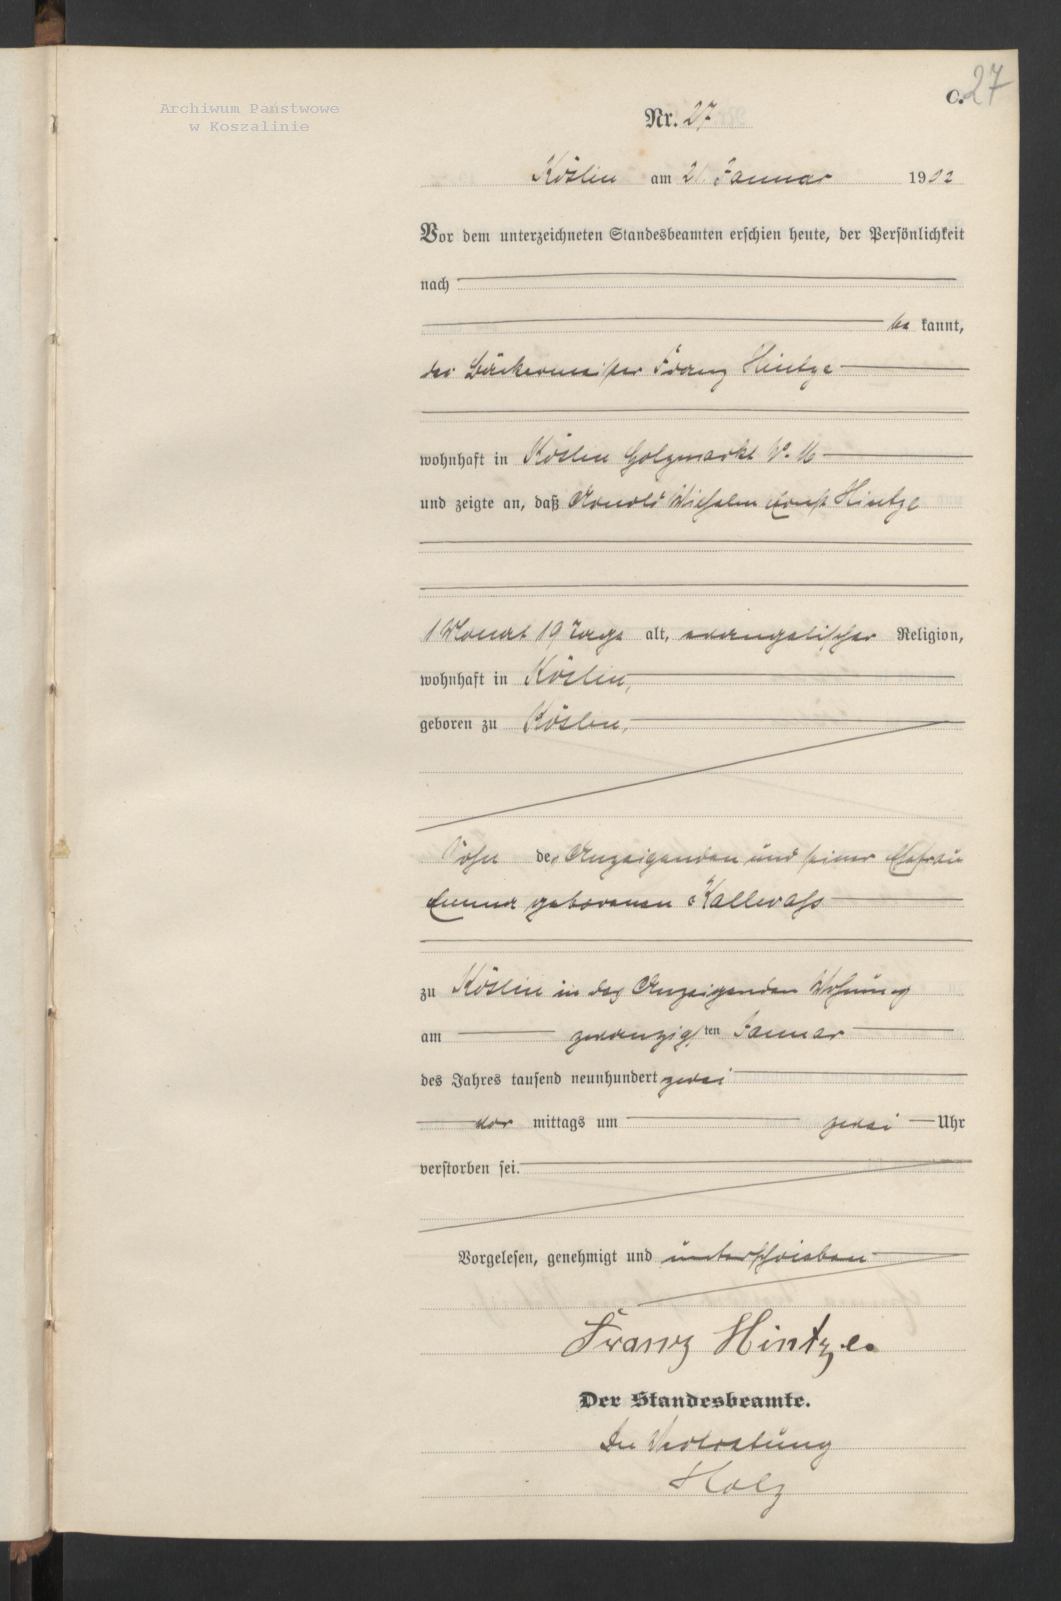 Archiwum Państwowe
w Koszalinie
C.
27
Nr. 27
Köslin am 21. Januar 1902
Vor dem unterzeichneten Standesbeamten erschien heute, der Persönlichkeit
nach
be kannt,
der Bäckermeister Franz Hintze
wohnhaft in Köslin Holzmarkt No. 16
und zeigte an, daß Arnold Wilhelm Ernst Hintze
1 Monat 19 Tage alt, evangelischer Religion,
wohnhaft in Köslin,
geboren zu Köslin,
Sohn des Anzeigenden und seiner Ehefrau
Emma geborenen Kallwaß
zu Köslin in des Anzeigenden Wohnung
am zwanzigsten Januar
des Jahres tausend neunhundert zwei
vor mittags um zwei Uhr
verstorben sei.
Vorgelesen, genehmigt und unterschrieben
Franz Hintze.
Der Standesbeamte.
In Vertretung
Holz